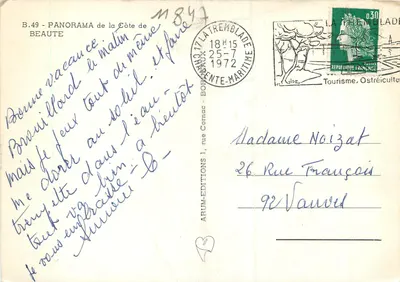 B.49 - PANORAMA de la Côte de
BEAUTE
11847
17 LA TREMBLADE
18H15
25-7
1972
CHARENTE-MARITIME
LA TREMBLADE
Tourisme. Ostréicult
0,30
REPUBLIQUE FRANÇAISE
Bonne vacance.
Brouillard le matin
mais je peux tout de même
me dorer au soleil. et faire
trempette dans l'eau -
tout va bien. a bientôt
je vous embrasse -
ARUM-EDITIONS 1, rue Cornac - BO
Madame Noizat
26 Rue François
92 Vanves